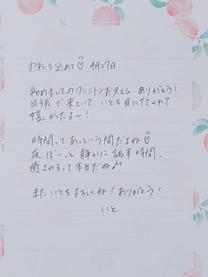 お礼を込めて 4月27日
初めましてのワシントンお兄さん ありがとう!
出張で来ていて いとを見つけてくれて
嬉しかったよ〜!
時間ってあっという間だよね
夜 ぼーっと 静かに 話す時間、
癒されるって本当だね♪
また いとをよろしくね! ありがとう!
いと